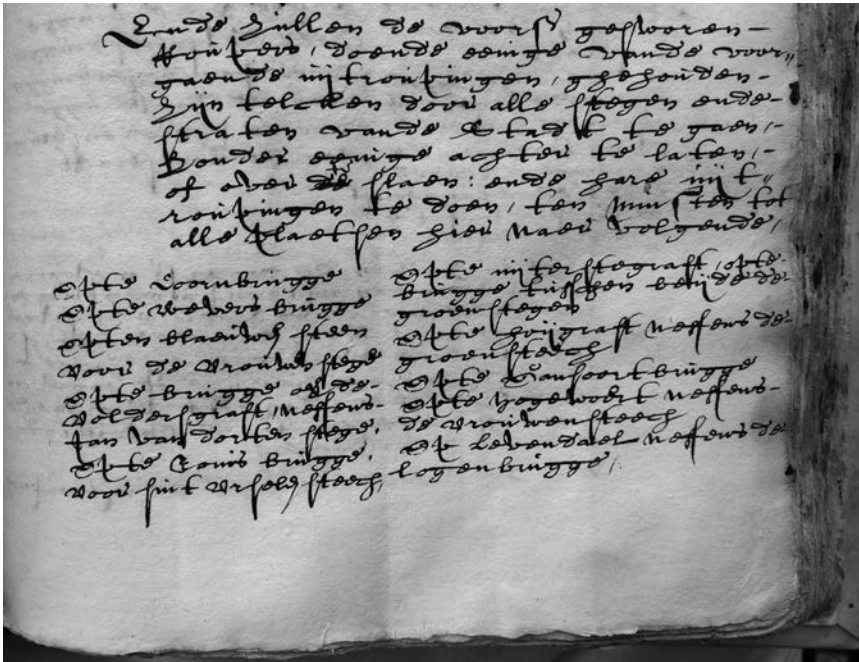 Ende zullen de voorsz geswooren
Roupers, doende eenige vande voor„
gaende uijtroupingen, ghehouden
zijn telcken door alle stegen ende
straten vande Stadt te gaen,
Sonder eenige achter te laten,
of over te slaen: ende hare uijt„
roupingen te doen, ten minsten tot
alle plaetsen hier naer volgende,
Opte Coornbrugge
Opte wevers brugge
Opten blaeuwen steen
voor de vrouwen stege
Opte brugge op de
voldersgraft, neffens
Jan van dorten stege.
Opte Cours brugge.
voor sint ursolen steech,
Opte uijterstegraft, opte
brugge tusschen beijde de
groenstegen
Opte hoijgraft neffens de
groensteech
Opte Gansoortbrugge
Opte hogewoert neffens
de vrouwensteech
Op levendael neffens de
logenbrugge,